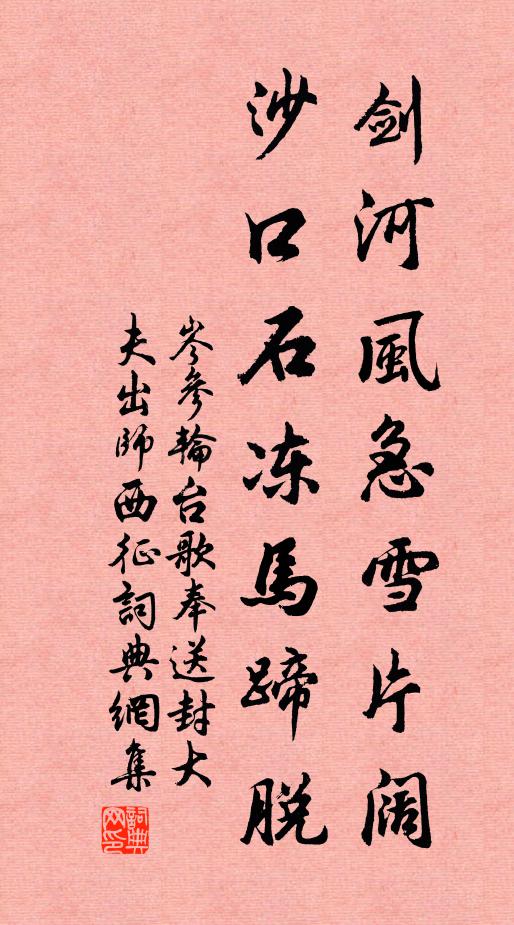 剑河風急雪片阔
沙口石冻馬蹄脱
岑參輪台歌奉送封大
夫出師西征詞典網集
詞典
网印